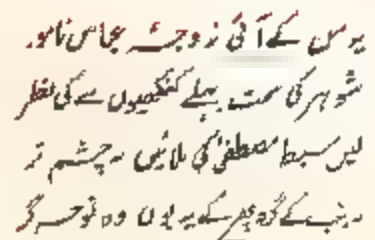 یہ سن کے آئی زوجۂ عباسِ نامور
شوہر کی سمت پہلے کنکھیوں سے کی نظر
لیں سبطِ مصطفیٰ کی بلائیں بہ چشمِ تر
زینب کے گرد پھر کے یہ بولی وہ نوحہ گر